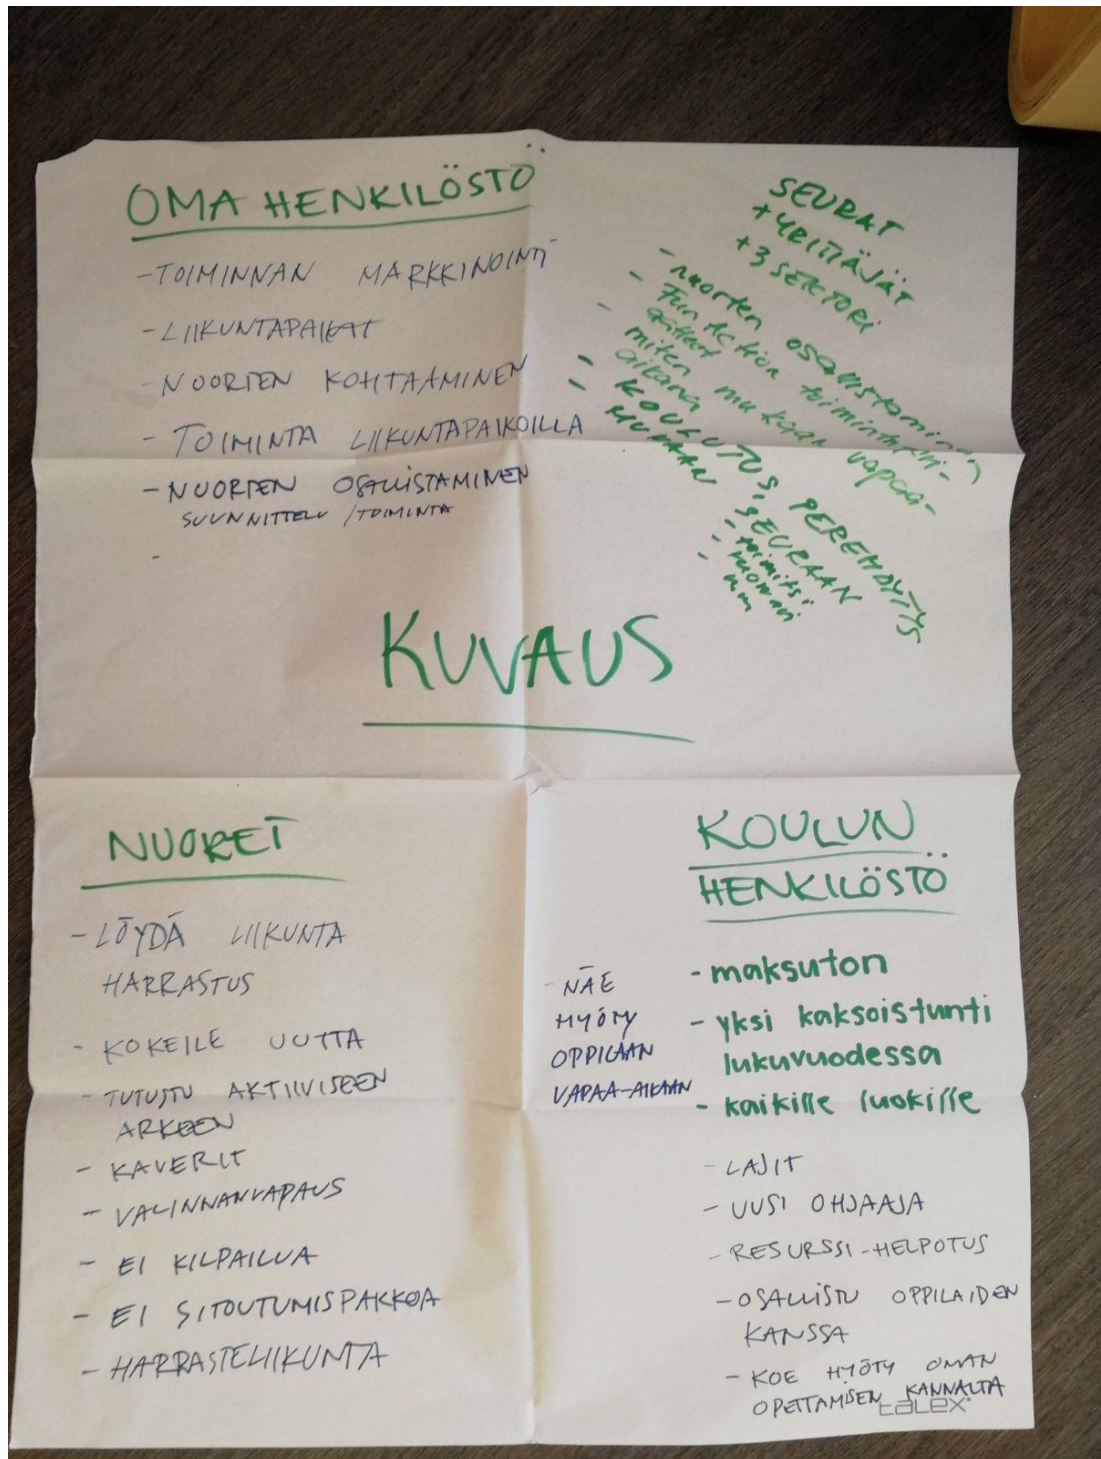 OMA HENKILÖSTÖ
-TOIMINNAN MARKKINOINTI
-LIIKUNTAPAIKAT
-NUORTEN KOHTAAMINEN
-TOIMINTA LIIKUNTAPAIKOILLA
-NUORTEN OSALLISTAMINEN
SUUNNITTELU / TOIMINTA
-
SEURAT
+ YRITTÄJÄT
+ 3 SEKTORI
- nuorten osallistaminen
- Fun Action toimintaan
- miten mukaan vapaa-
aikana
- KOULUTUS, PEREHDYTYS
- MUKAAN SEURAAN
- toimitsi
- tuomari
- mm
KUVAUS
NUORET
-LÖYDÄ LIIKUNTA
HARRASTUS
- KOKEILE UUTTA
- TUTUSTU AKTIIVISEEN
ARKEEN
- KAVERIT
- VALINNANVAPAUS
- EI KILPAILUA
- EI SITOUTUMISPAKKOA
-HARRASTELIIKUNTA
KOULUN
HENKILÖSTÖ
- NÄE
HYÖTY
OPPILAAN
VAPAA-AIKAAN
- maksuton
- yksi kaksoistunti
lukuvuodessa
- kaikille luokille
- LAJIT
- UUSI OHJAAJA
- RESURSSI-HELPOTUS
-OSALLISTU OPPILAIDEN
KANSSA
- KOE HYÖTY OMAN
OPETTAMISEN KANNALTA
talex